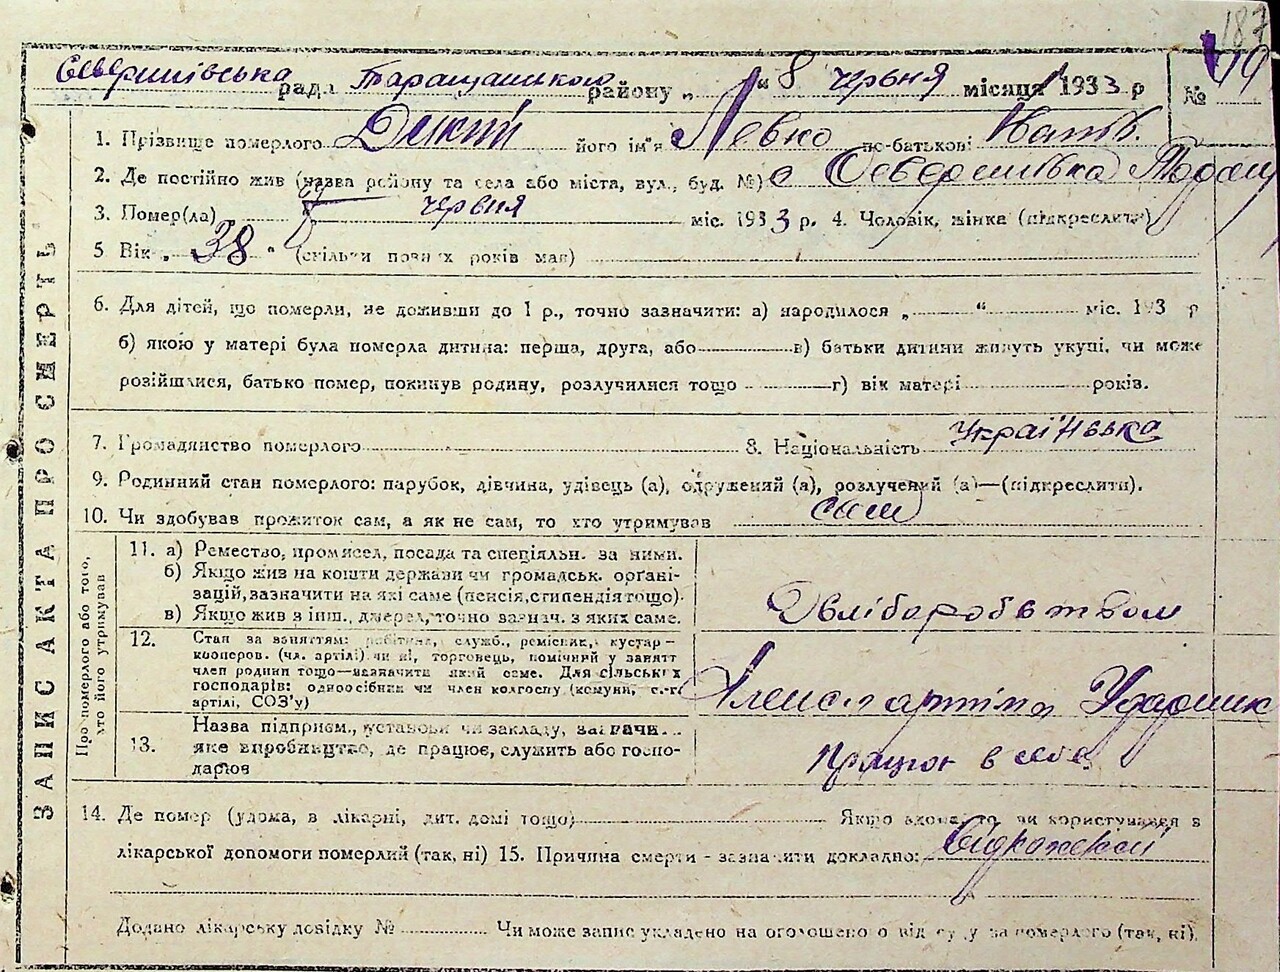 187
Северинівська рада Таращанського району „ “ 8 червня місяця 1933 р № 79
ЗАПИС АКТА ПРО СМЕРТЬ
1. Прізвище померлого Дикий його ім'я Левко по-батькові
2. Де постійно жив (назва району та села або міста, вул., буд. №) с Северинівка Таращ
3. Помер(ла) 8 червня міс. 1933 р. 4. Чоловік, жінка (підкреслити)
5 Вік „ 38 “ (скільки повних років мав)
6. Для дітей, що померли, не доживши до 1 р., точно зазначити: а) народилося „ “ міс. 193 р
б) якою у матері була померла дитина: перша, друга, або в) батьки дитини живуть укупі, чи може
розійшлися, батько помер, покинув родину, розлучилися тощо г) вік матері років.
7. Громадянство померлого 8. Національність Українська
9. Родинний стан померлого: парубок, дівчина, удівець (а), одружений (а), розлучений (а)—(підкреслити).
10. Чи здобував прожиток сам, а як не сам, то хто утримував сам
Про померлого або того, хто його утримував
11. а) Ремество, промисел, посада та спеціяльн. за ними.
б) Якщо жив на кошти держави чи громадськ. орґані-
зацій, зазначити на які саме (пенсія, стипендія тощо).
в) Якщо жив з інш. джерел, точно зазнач. з яких саме.
Хліборобством
12. Стан за заняттям: робітник, служб., ремісник, кустар-
кооперов. (чл. артілі) чи ні, торговець, помічний у занятт
член родини тощо—зазначити який саме. Для сільських
господарів: одноосібник чи член колгоспу (комуни, с.-г.
артілі, СОЗ'у)
Член с артіли Ударник
13. Назва підприєм., установи чи закладу, зазначи...
яке виробництво, де працює, служить або госпо-
дарює
працює в селі
14. Де помер (удома, в лікарні, дит. домі тощо) Якщо вдома, то чи користувався з
лікарської допомоги померлий (так, ні) 15. Причина смерти - зазначити докладно:
Додано лікарську довідку № Чи може запис укладено на оголошено о від суду за померлого (так, ні).